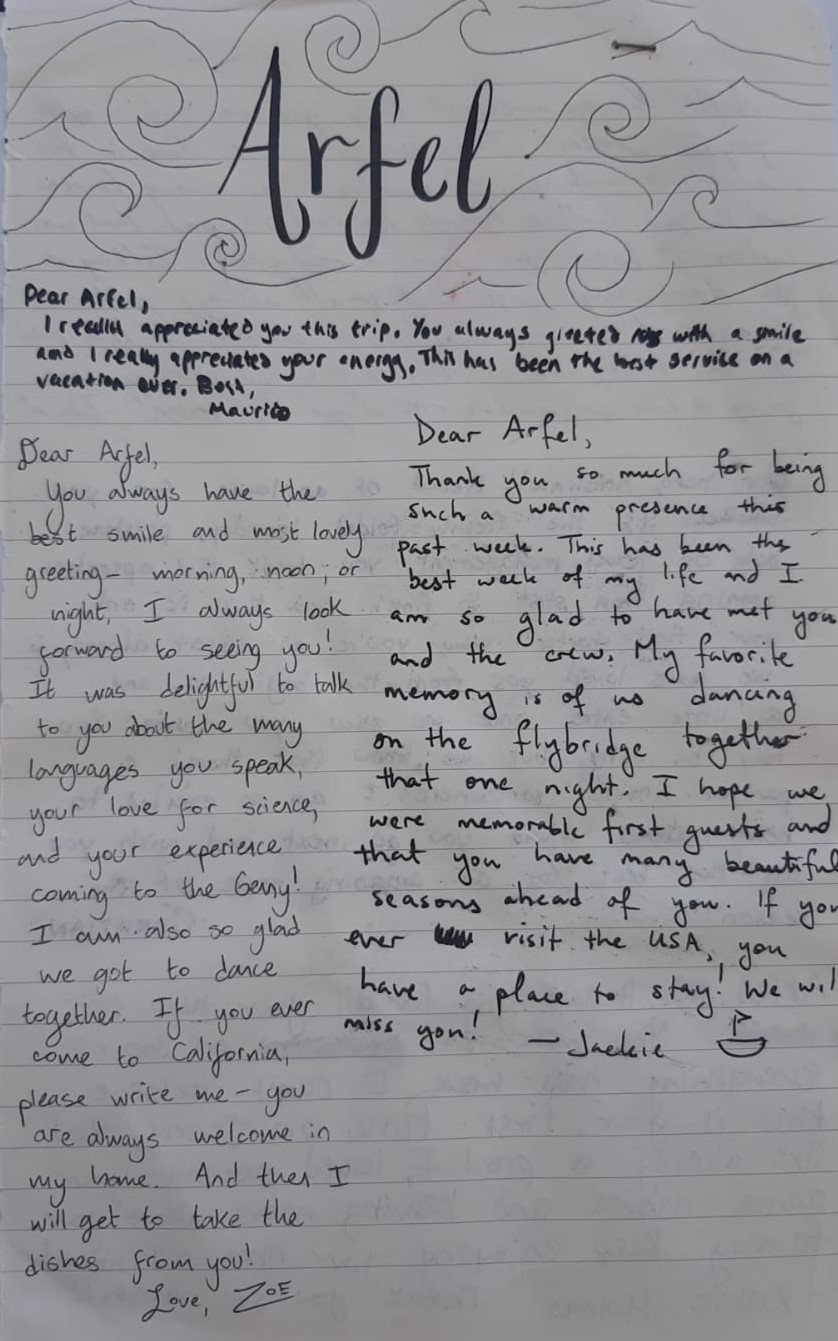 Arfel
Dear Arfel,
I really appreciated you this trip. You always greeted us with a smile
and I really appreciated your energy. This has been the best service on a
vacation ever. Best,
Maurico
Dear Arfel,
You always have the
best smile and most lovely
greeting- morning, noon, or
night, I always look
forward to seeing you!
It was delightful to talk
to you about the many
languages you speak,
your love for science,
and your experience
coming to the Genny!
I am also so glad
we got to dance
together. If you ever
come to California,
please write me - you
are always welcome in
my home. And then I
will get to take the
dishes from you!
Love, ZOE
Dear Arfel,
Thank you so much for being
such a warm presence this
past week. This has been the
best week of my life and I
am so glad to have met you
and the crew. My favorite
memory is of us dancing
on the flybridge together
that one night. I hope we
were memorable first guests and
that you have many beautiful
seasons ahead of you. If you
ever visit the USA, you
have a place to stay! We will
miss you! — Jackie